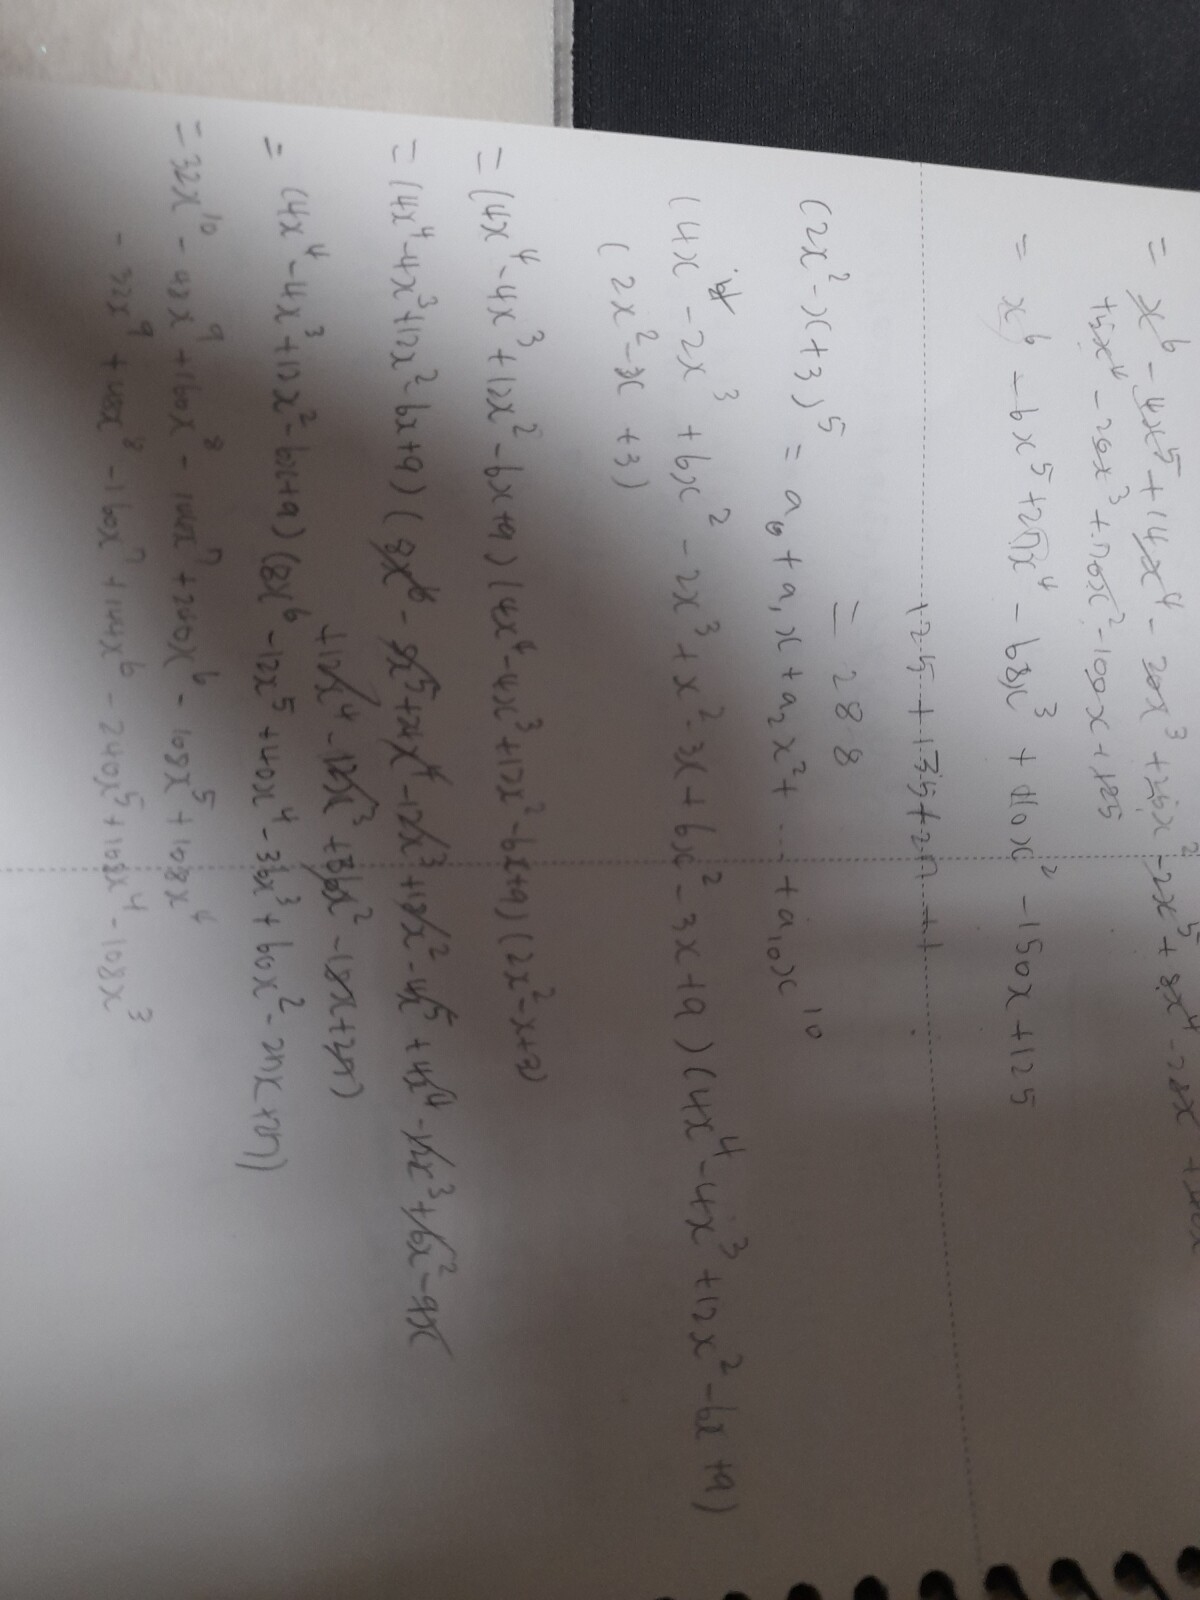 = x⁶ - 4x⁵ + 14x⁴ - 20x³ + 25x² - 2x⁵ + 8x⁴ - 28x
+5x⁴ - 20x³ + 70x² - 100x + 125
= x⁶ - 6x⁵ + 27x⁴ - 68x³ + 110x² - 150x + 125
125 + 135 + 27 + 1
= 288
(2x² - x + 3)⁵ = a₀ + a₁x + a₂x² + ... + a₁₀x¹⁰
(4x⁴ - 2x³ + 6x² - 2x³ + x² - 3x + 6x² - 3x + 9)(4x⁴ - 4x³ + 12x² - 6x + 9)
(2x² - x + 3)
= (4x⁴ - 4x³ + 12x² - 6x + 9)(4x⁴ - 4x³ + 12x² - 6x + 9)(2x² - x + 3)
= (4x⁴ - 4x³ + 12x² - 6x + 9)(8x⁶ - 8x⁵ + 24x⁴ - 12x³ + 18x² - 4x⁵ + 4x⁴ - 12x³ + 6x² - 9x
+ 12x⁴ - 12x³ + 36x² - 18x + 27)
= (4x⁴ - 4x³ + 12x² - 6x + 9)(8x⁶ - 12x⁵ + 40x⁴ - 36x³ + 60x² - 27x + 27)
= 32x¹⁰ - 48x⁹ + 160x⁸ - 144x⁷ + 240x⁶ - 108x⁵ + 108x⁴
- 32x⁹ + 48x⁸ - 160x⁷ + 144x⁶ - 240x⁵ + 108x⁴ - 108x³